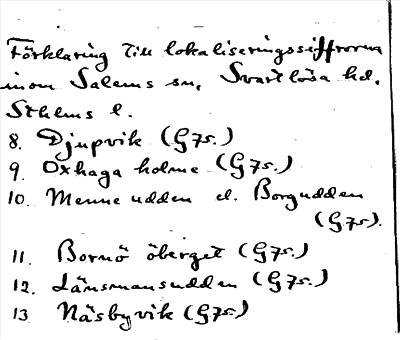 Förklaring till lokaliseringssiffrorna
inom Salems sn, Svartlösa hd,
Sthlms l.
8. Djupvik (G7s.)
9. Oxhaga holme (G7s.)
10. Menneudden el. Borgudden
(G7s).
11. Bornö öberget (G7s.)
12. Länsmansudden (G7s.)
13 Näsbyvik (G7s.)